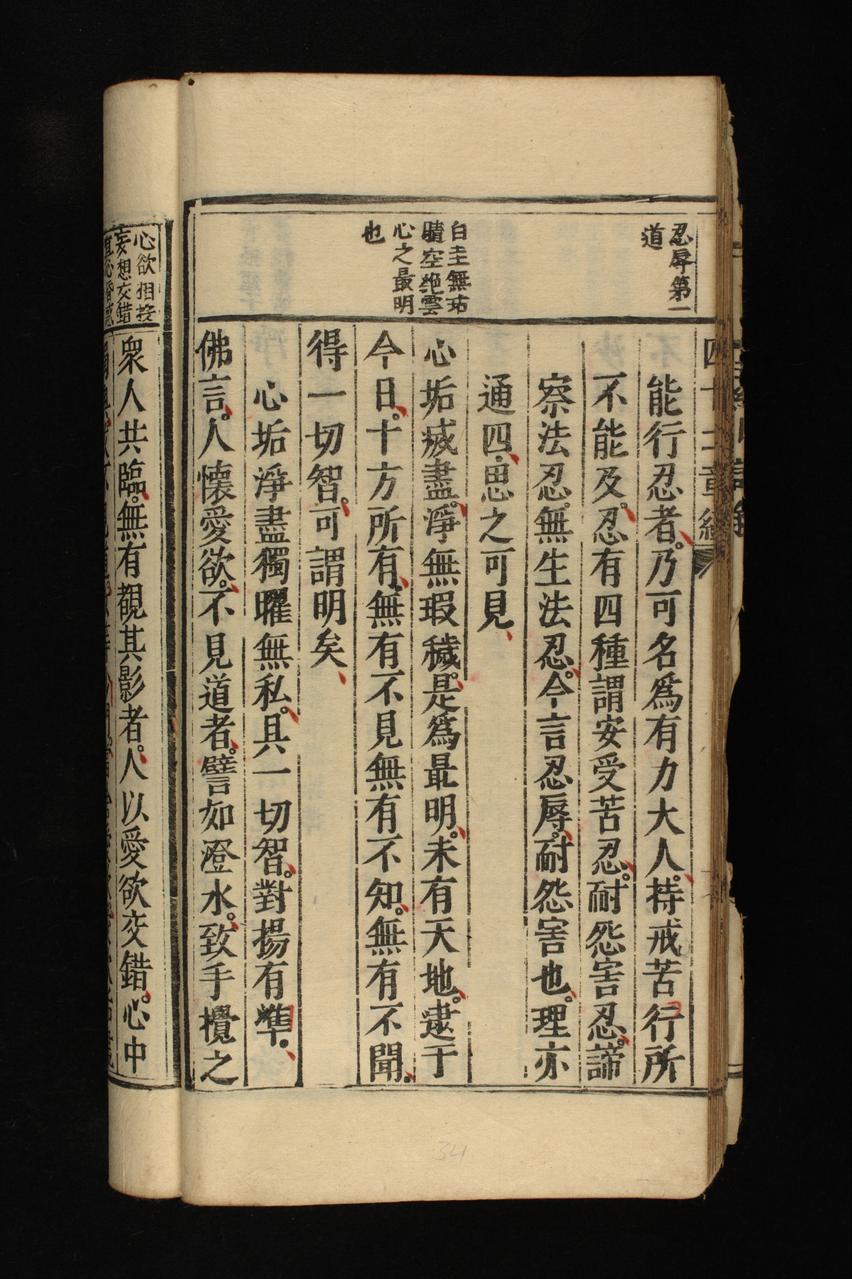 忍辱第一
道
白圭無玷
晴空絶雲
心之最明
也
能行忍者。乃可名爲有力大人。持戒苦行所
不能及。忍有四種謂安受苦忍。耐怨害忍。諦
察法忍。無生法忍。今言忍辱。耐怨害也。理亦
通四。思之可見
心垢滅盡。淨無瑕穢。是爲最明。未有天地。逮于
今日。十方所有。無有不見無有不知。無有不聞。
得一切智。可謂明矣
心垢淨盡獨曜無私。具一切智。對揚有準。
佛言。人懷愛欲。不見道者。譬如澄水。致手攪之
心欲相投
妄想交錯
衆人共臨。無有覩其影者。人以愛欲交錯。心中
34